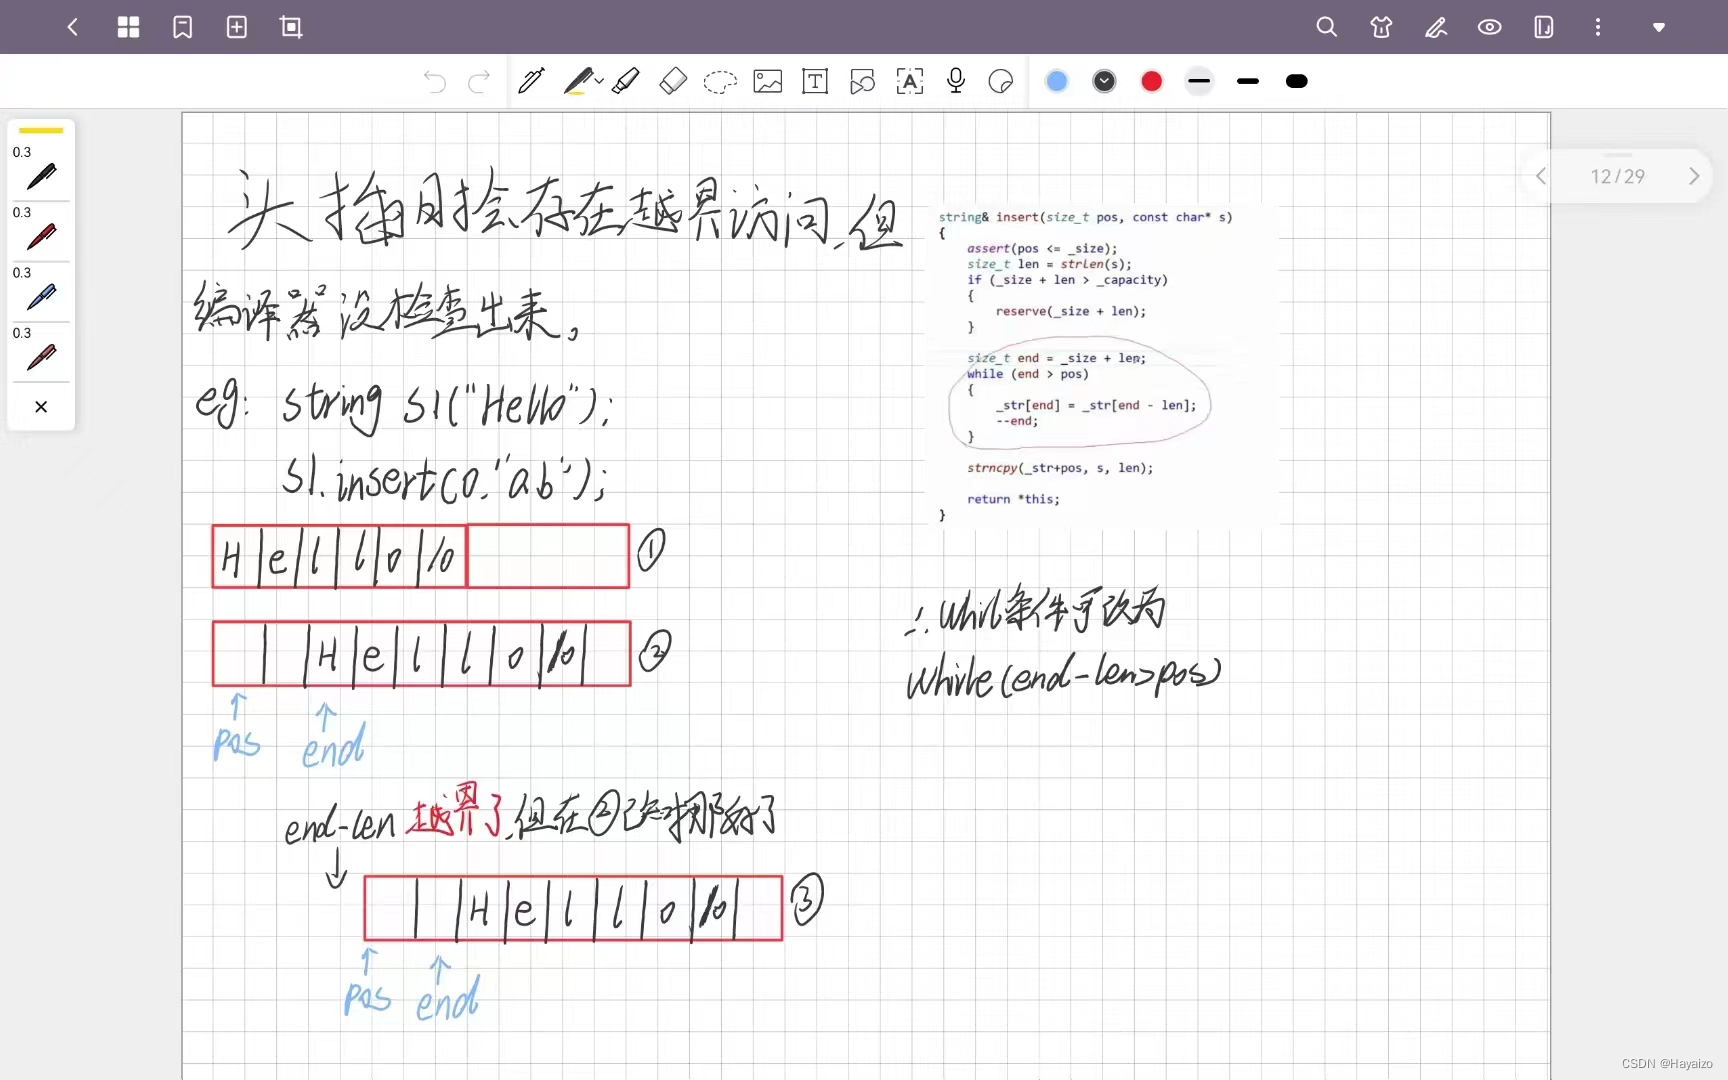 12/29
0.3
0.3
0.3
0.3
头插时会存在越界访问,但
编译器没检查出来,
eg: string s1("Hello");
s1.insert(0,"ab");
H e l l o \0 ①
H e l l o \0 ②
pos end
end-len 越界了,但在②已经挪好了
H e l l o \0 ③
pos end
string& insert(size_t pos, const char* s)
{
assert(pos <= _size);
size_t len = strlen(s);
if (_size + len > _capacity)
{
reserve(_size + len);
}
size_t end = _size + len;
while (end > pos)
{
_str[end] = _str[end - len];
--end;
}
strncpy(_str+pos, s, len);
return *this;
}
∴ whil条件可改为
while(end-len>pos)
CSDN @Hayaizo